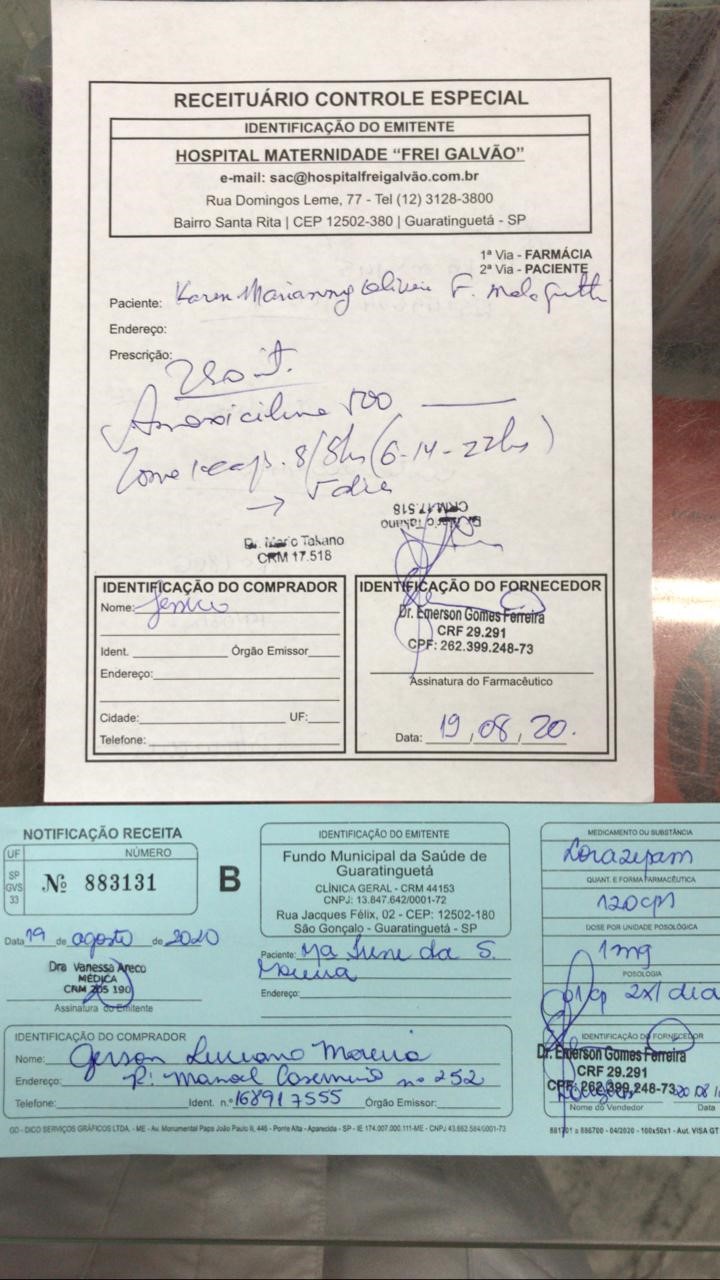 RECEITUÁRIO CONTROLE ESPECIAL
IDENTIFICAÇÃO DO EMITENTE
HOSPITAL MATERNIDADE “FREI GALVÃO”
e-mail: sac@hospitalfreigalvão.com.br
Rua Domingos Leme, 77 - Tel (12) 3128-3800
Bairro Santa Rita | CEP 12502-380 | Guaratinguetá - SP
1ª Via - FARMÁCIA
2ª Via - PACIENTE
Paciente: Karen Marianny F.
Endereço:
Prescrição:
Uso
Amoxicilina 500
8/8hs (6-14-22hs)
→
Dr. Mario Takano
CRM 17.518
Dr. Mario Takano
CRM 17.518
IDENTIFICAÇÃO DO COMPRADOR
Nome: Jessica
Ident. Órgão Emissor
Endereço:
Cidade: UF:
Telefone:
IDENTIFICAÇÃO DO FORNECEDOR
Dr. Emerson Gomes Ferreira
CRF 29.291
CPF: 262.399.248-73
Assinatura do Farmacêutico
Data: 19, 08, 20.
NOTIFICAÇÃO RECEITA
UF
NÚMERO
SP
GVS
33
Nº 883131
B
Data 19 de agosto de 2020
Dra Vanessa Areco
MÉDICA
CRM 205 190
Assinatura do Emitente
IDENTIFICAÇÃO DO EMITENTE
Fundo Municipal da Saúde de
Guaratinguetá
CLÍNICA GERAL - CRM 44153
CNPJ: 13.847.642/0001-72
Rua Jacques Félix, 02 - CEP: 12502-180
São Gonçalo - Guaratinguetá - SP
Paciente: Mª da S.
Moreira
Endereço:
MEDICAMENTO OU SUBSTÂNCIA
Lorazepam
QUANT. E FORMA FARMACÊUTICA
120cp
DOSE POR UNIDADE POSOLÓGICA
1mg
POSOLOGIA
01cp 2x1 dia
IDENTIFICAÇÃO DO COMPRADOR
Nome: Gerson Luciano Moreira
Endereço: R: Manoel nº 252
Telefone: Ident. n.º 168917555 Órgão Emissor:
IDENTIFICAÇÃO DO FORNECEDOR
Dr. Emerson Gomes Ferreira
CRF 29.291
CPF: 262.399.248-73
Nome do Vendedor Data
GD - DICO SERVIÇOS GRÁFICOS LTDA. - ME - Av. Monumental Papa João Paulo II, 446 - Ponte Alta - Aparecida - SP - IE 174.007.000.111-ME - CNPJ 43.662.584/0001-73
881701 a 886700 - 04/2020 - 100x50x1 - Aut. VISA GT